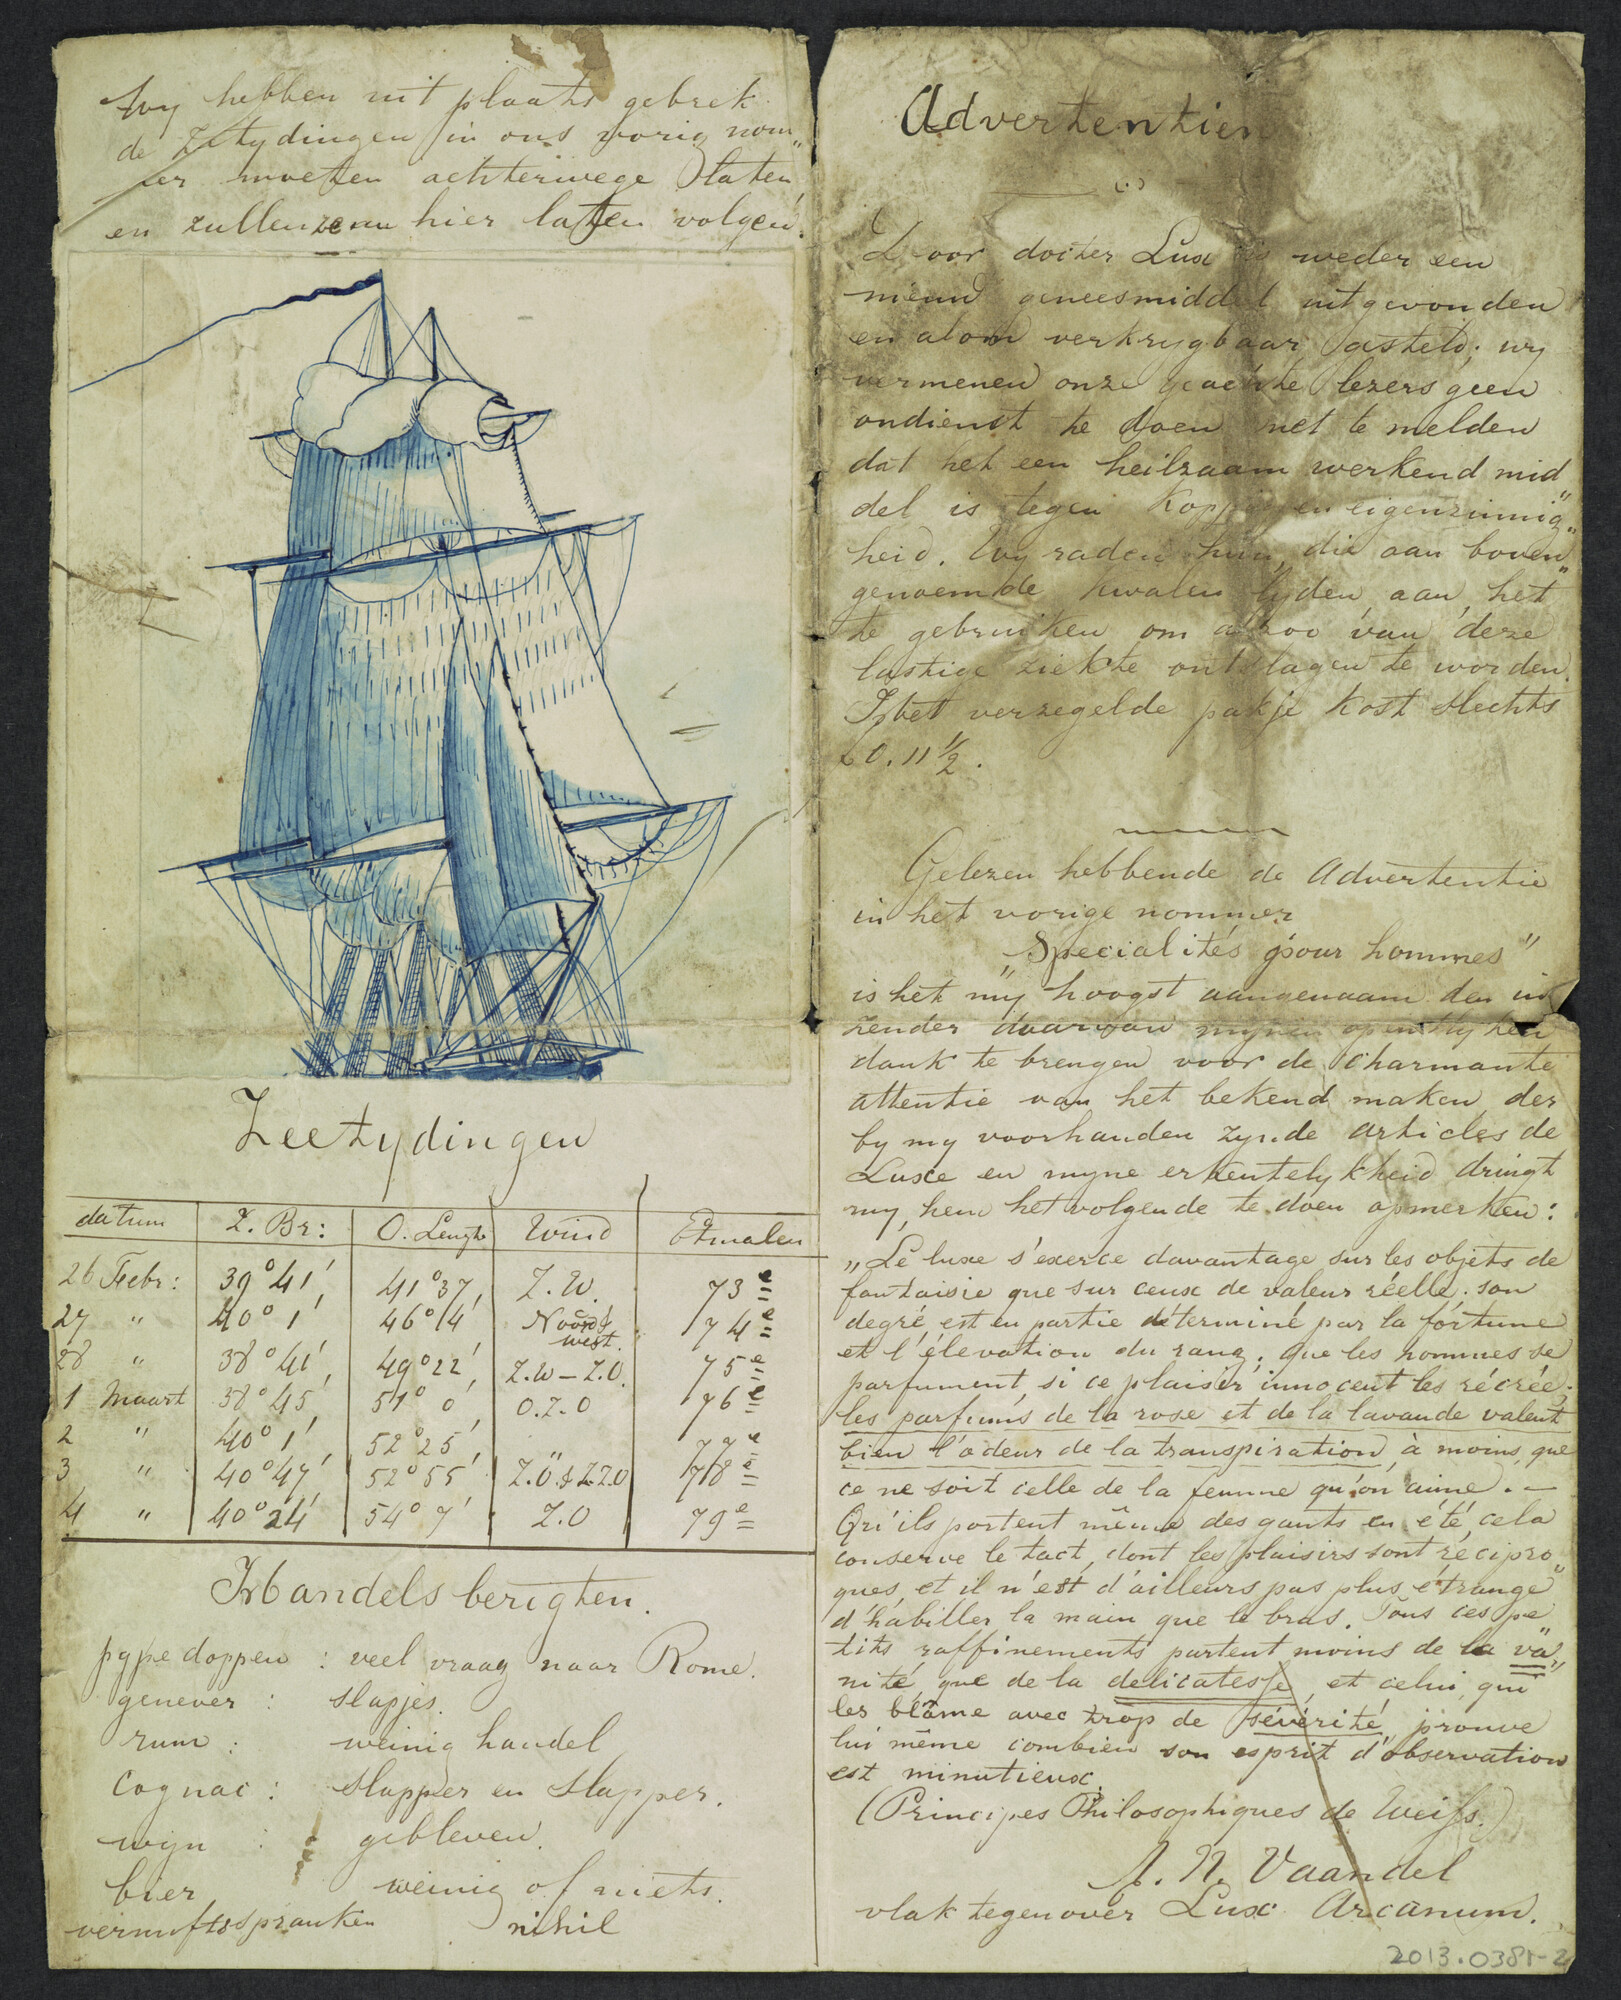 Wy hebben uit plaats gebrek
de Zeetydingen in ons vorig nom„
mer moeten achterwege laten
en zullen ze nu hier laten volgen.
Zeetydingen
datum Z. Br: O. Lengte Wind Etmalen
26 Febr: 39° 41' 41° 37' Z.W. 73e
27 " 40° 1' 46° 4' Noord west. 74e
28 " 38° 41' 49° 22' Z.W – Z.O. 75e
1 Maart 38° 45' 51° 0' O.Z.O 76e
2 " 40° 1' 52° 25' " 77e
3 " 40° 47' 52° 55' Z.O. & Z.Z.O 78e
4 " 40° 24' 54° 7' Z.O 79e
Handelsberigten.
pypedoppen : veel vraag naar Rome.
genever : slapjes.
rum : weinig handel
Cognac : slapper en slapper.
wijn : gebleven.
bier weinig of niets.
vernuftsspranken nihil
Advertentien
Door docter Lux is weder een
nieuw geneesmiddel uitgevonden
en alom verkrygbaar gesteld; wy
vermenen onze geachte lezers geen
ondienst te doen met te melden
dat het een heilzaam werkend mid
del is tegen Kopp en eigenzinnig„
heid. Wy raden hun, die aan boven„
genoemde kwalen lyden, aan, het
te gebruiken om alzoo van deze
lastige ziekte ontslagen te worden.
Het verzegelde pakje kost slechts
f 0.11½.
Gelezen hebbende de Advertentie
in het vorige nommer
„Specialités pour hommes"
is het my hoogst aangenaam den in
zender daarvan mynen openttlyken
dank te brengen voor de charmante
attentie van het bekend maken der
by my voorhanden zynde articles de
Luxe en myne erkentelykheid dringt
my, hem het volgende te doen opmerken:
„Le luxe s'exerce davantage sur les objets de
fantaisie que sur ceux de valeur réelle; son
degré est en partie déterminé par la fortune
et l'élevation du rang; que les hommes se
parfument, si ce plaisir innocent les récrée;
les parfums de la rose et de la lavande valent
bien l'odeur de la transpiration, à moins que
ce ne soit celle de la femme qu'on aime. –
Qu'ils portent même des gants en été, cela
conserve le tact, dont les plaisirs sont récipro„
ques, et il n'est d'ailleurs pas plus étrange
d'habiller la main que le bras. Tous ces pe
tits raffinements partent moins de la va„
nité, que de la delicatesse, et celui, qui
les blâme avec trop de sévérité, prouve
lui même combien son esprit d'observation
est minutieux.
(Principes Philosophiques de Weiss.)
A. N. Vaandel
vlak tegenover Lux Arcanum.
2013.0381-2